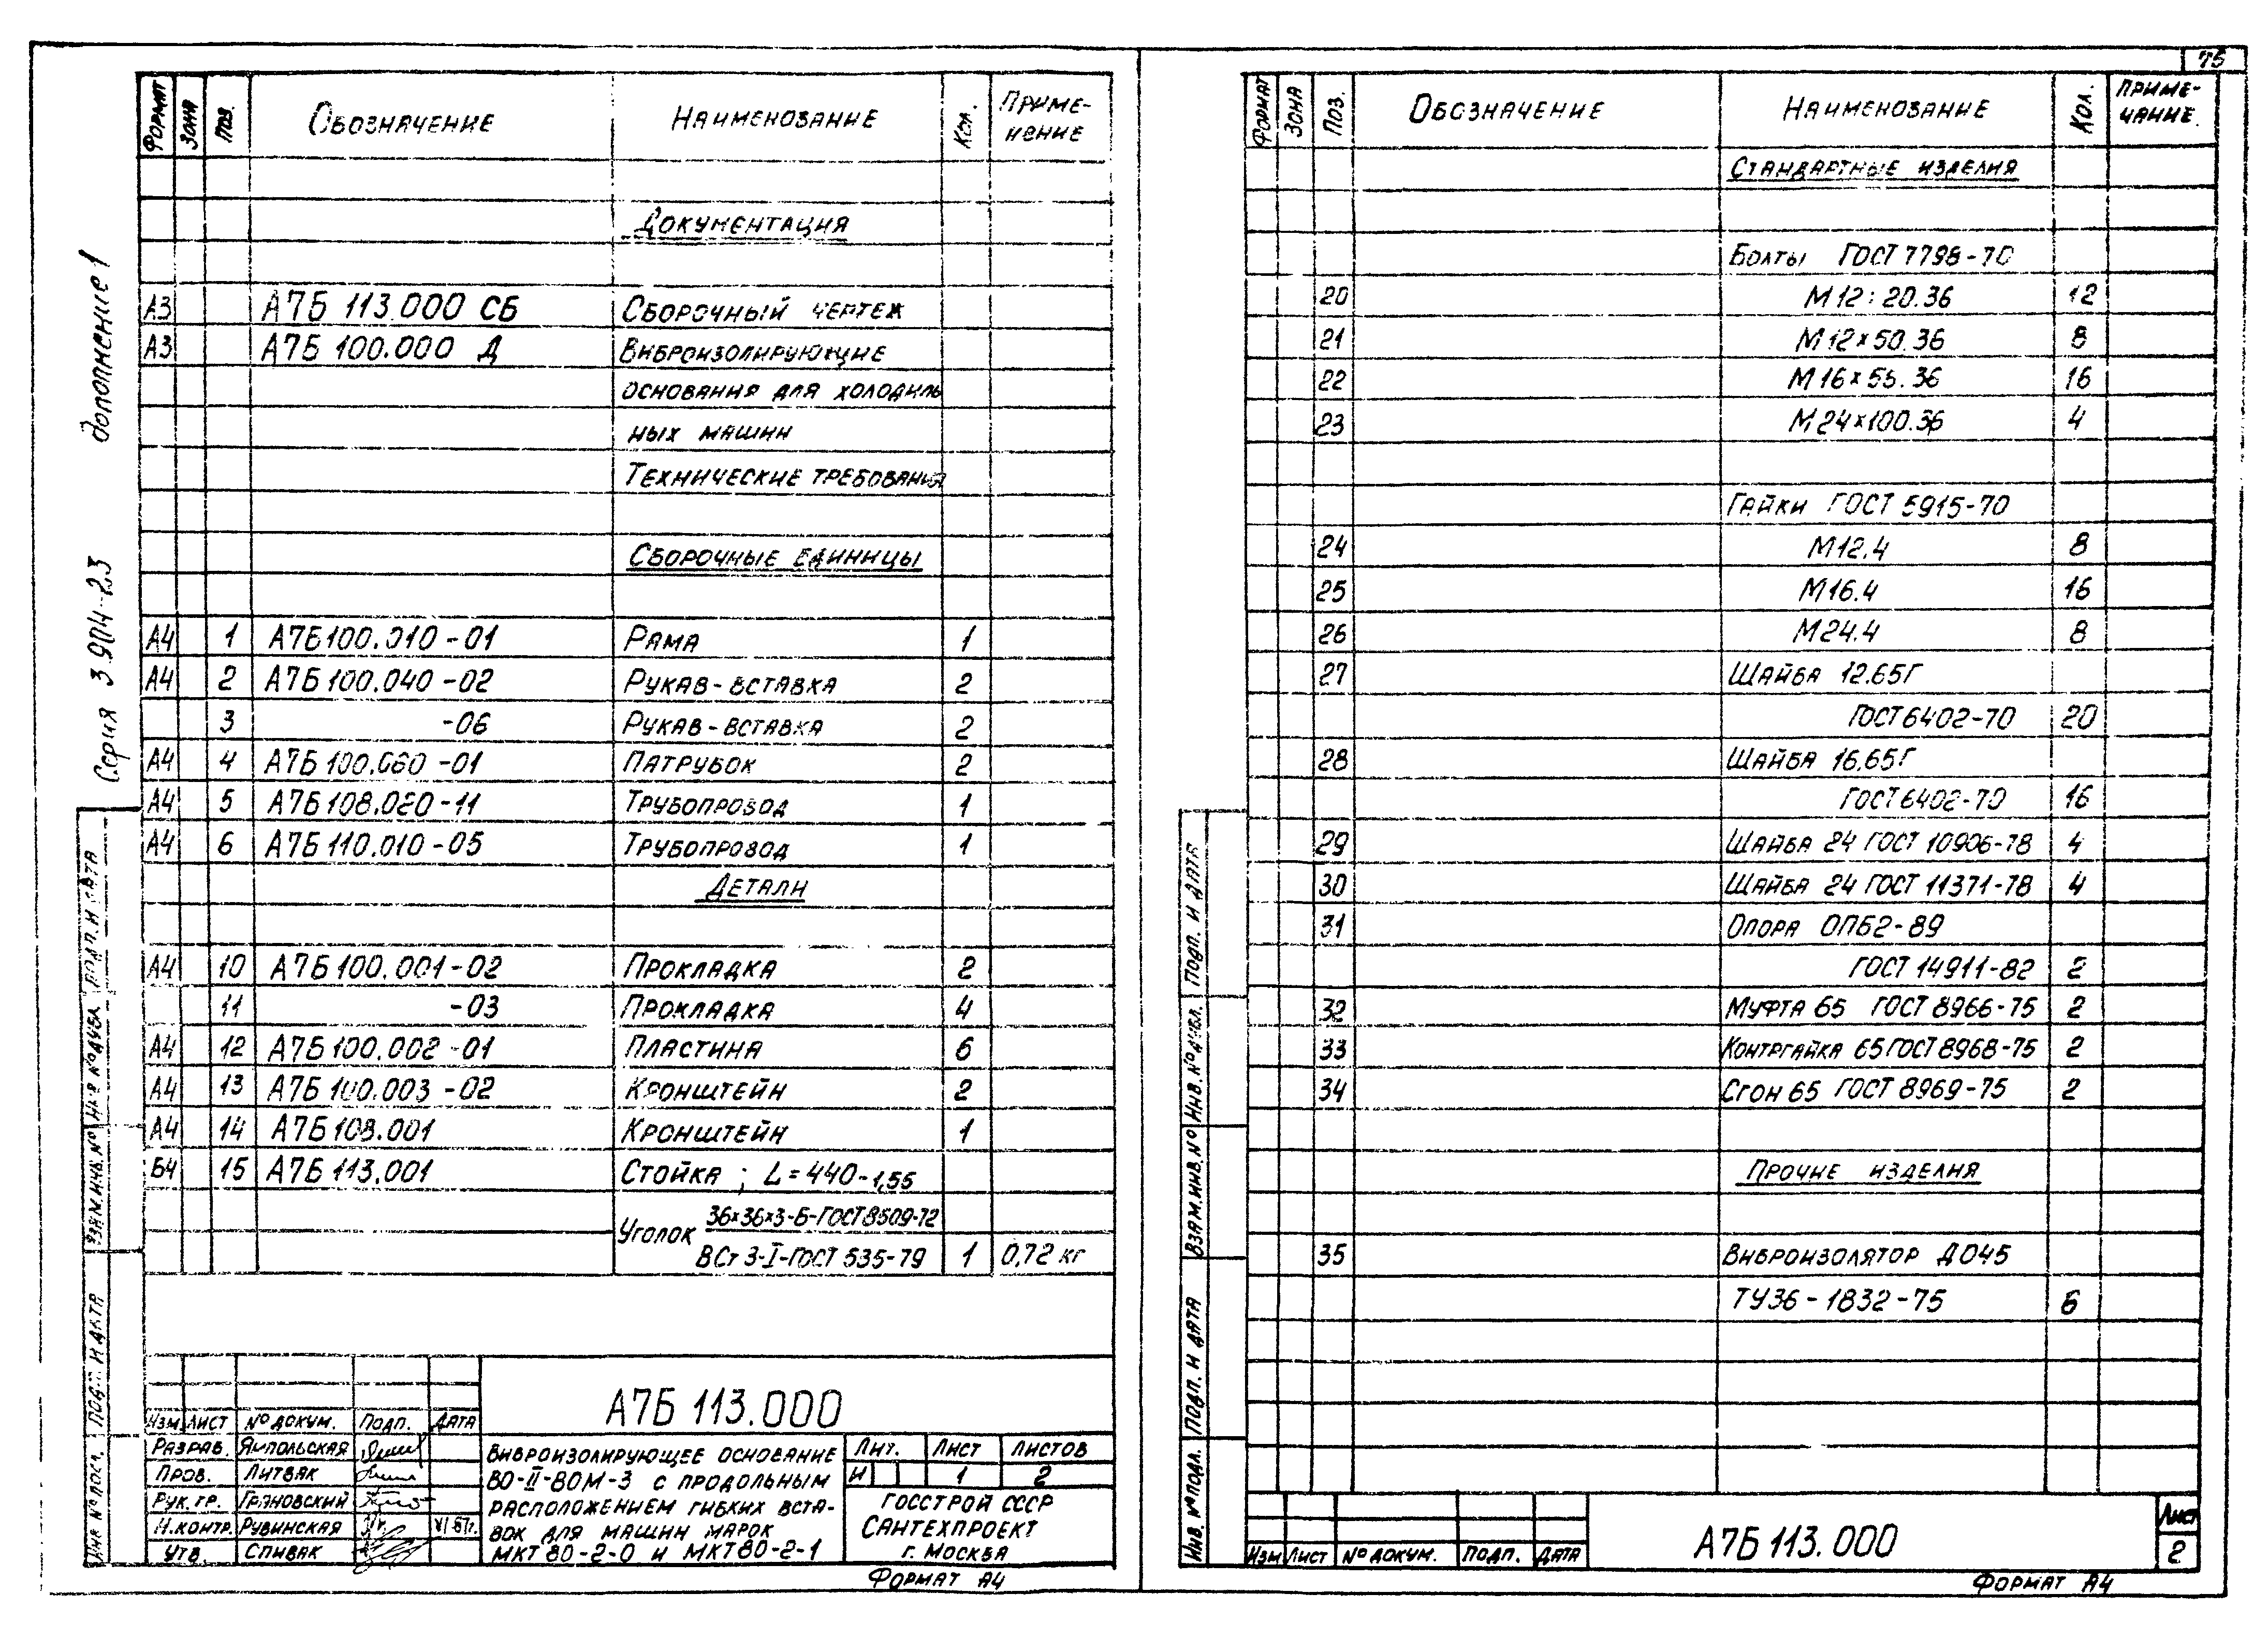 75
Серия 3.904-23 дополнение 1
ФОРМАТ ЗОНА ПОЗ. ОБОЗНАЧЕНИЕ НАИМЕНОВАНИЕ КОЛ. ПРИМЕ-
НЕНИЕ
ДОКУМЕНТАЦИЯ
А3 А7Б 113.000 СБ СБОРОЧНЫЙ ЧЕРТЕЖ
А3 А7Б 100.000 Д ВИБРОИЗОЛИРУЮЩИЕ
ОСНОВАНИЯ ДЛЯ ХОЛОДИЛЬ
НЫХ МАШИН
ТЕХНИЧЕСКИЕ ТРЕБОВАНИЯ
СБОРОЧНЫЕ ЕДИНИЦЫ
А4 1 А7Б100.010-01 РАМА 1
А4 2 А7Б100.040-02 РУКАВ-ВСТАВКА 2
3 -06 РУКАВ-ВСТАВКА 2
А4 4 А7Б100.060-01 ПАТРУБОК 2
А4 5 А7Б108.020-11 ТРУБОПРОВОД 1
А4 6 А7Б110.010-05 ТРУБОПРОВОД 1
ДЕТАЛИ
А4 10 А7Б100.001-02 ПРОКЛАДКА 2
11 -03 ПРОКЛАДКА 4
А4 12 А7Б100.002-01 ПЛАСТИНА 6
А4 13 А7Б100.003-02 КРОНШТЕЙН 2
А4 14 А7Б108.001 КРОНШТЕЙН 1
Б4 15 А7Б113.001 СТОЙКА ; L=440-1,55
УГОЛОК 36×36×3-Б-ГОСТ8509-72
ВСт 3-I-ГОСТ 535-79 1 0,72 кг
А7Б 113.000
ИЗМ ЛИСТ № ДОКУМ. ПОДП. ДАТА
РАЗРАБ. ЯМПОЛЬСКАЯ
ПРОВ. ЛИТВАК
РУК. ГР. ГРАНОВСКИЙ
Н.КОНТР. РУВИНСКАЯ
УТВ. СПИВАК
ВИБРОИЗОЛИРУЮЩЕЕ ОСНОВАНИЕ
ВО-II-80М-3 С ПРОДОЛЬНЫМ
РАСПОЛОЖЕНИЕМ ГИБКИХ ВСТА-
ВОК ДЛЯ МАШИН МАРОК
МКТ80-2-0 И МКТ80-2-1
ЛИТ. ЛИСТ ЛИСТОВ
И 1 2
ГОССТРОЙ СССР
САНТЕХПРОЕКТ
г. МОСКВА
ФОРМАТ А4
ИНВ. № ПОДЛ. ПОДП. И ДАТА ВЗАМ.ИНВ.№ ИНВ.№ДУБЛ. ПОДП. И ДАТА
ФОРМАТ ЗОНА ПОЗ. ОБОЗНАЧЕНИЕ НАИМЕНОВАНИЕ КОЛ. ПРИМЕ-
ЧАНИЕ.
СТАНДАРТНЫЕ ИЗДЕЛИЯ
БОЛТЫ ГОСТ 7798-70
20 М12×20.36 12
21 М12×50.36 8
22 М16×55.36 16
23 М24×100.36 4
ГАЙКИ ГОСТ 5915-70
24 М12.4 8
25 М16.4 16
26 М24.4 8
27 ШАЙБА 12.65Г
ГОСТ6402-70 20
28 ШАЙБА 16.65Г
ГОСТ6402-70 16
29 ШАЙБА 24 ГОСТ 10906-78 4
30 ШАЙБА 24 ГОСТ 11371-78 4
31 ОПОРА ОПБ2-89
ГОСТ 14911-82 2
32 МУФТА 65 ГОСТ 8966-75 2
33 КОНТРГАЙКА 65 ГОСТ8968-75 2
34 СГОН 65 ГОСТ 8969-75 2
ПРОЧИЕ ИЗДЕЛИЯ
35 ВИБРОИЗОЛЯТОР ДО45
ТУ36-1832-75 6
ИНВ. № ПОДЛ. ПОДП. И ДАТА ВЗАМ.ИНВ.№ ИНВ.№ДУБЛ. ПОДП. И ДАТА
ИЗМ ЛИСТ № ДОКУМ. ПОДП. ДАТА
А7Б 113.000
ЛИСТ
2
ФОРМАТ А4